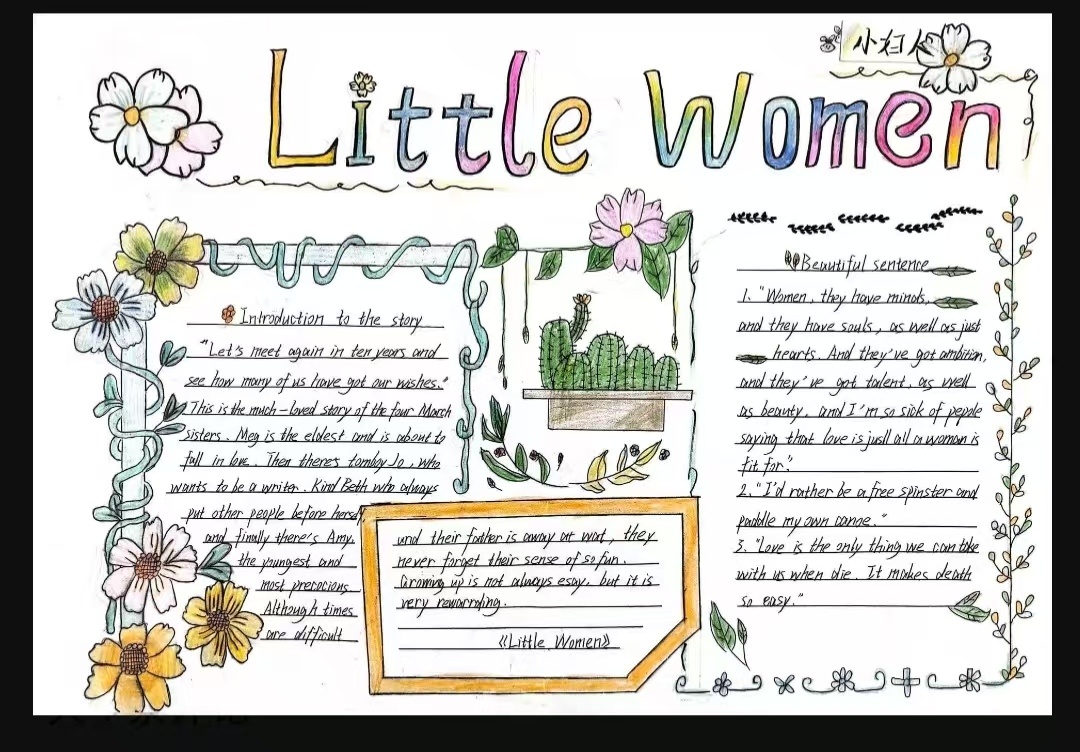 小妇人
Little Women
Introduction to the story
"Let's meet again in ten years and
see how many of us have got our wishes."
This is the much-loved story of the four March
sisters. Meg is the eldest and is about to
fall in love. Then there's tomboy Jo, who
wants to be a writer. Kind Beth who always
put other people before herself
and finally there's Amy,
the youngest and
most precocious
Although times
are difficult
and their father is away at war, they
never forget their sense of so fun.
Growing up is not always esay, but it is
very rewarrding.
《Little Women》
Beautiful sentence
1. "Women, they have minds,
and they have souls, as well as just
hearts. And they've got ambition,
and they've got talent, as well
as beauty, and I'm so sick of people
saying that love is just all a woman is
fit for."
2. "I'd rather be a free spinster and
paddle my own canoe."
3. "Love is the only thing we can take
with us when die. It makes death
so easy."